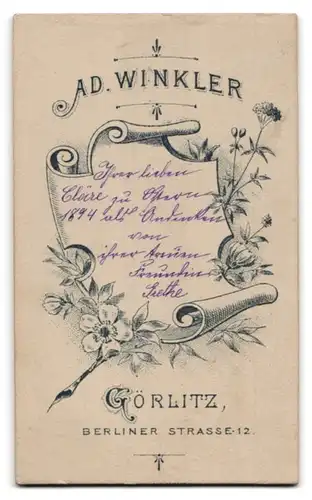 AD. WINKLER
Ihrer lieben
Cläre zu Ostern
1894 als Andenken
von
ihrer treuen
Freundin
Grethe
GÖRLITZ,
BERLINER STRASSE·12.